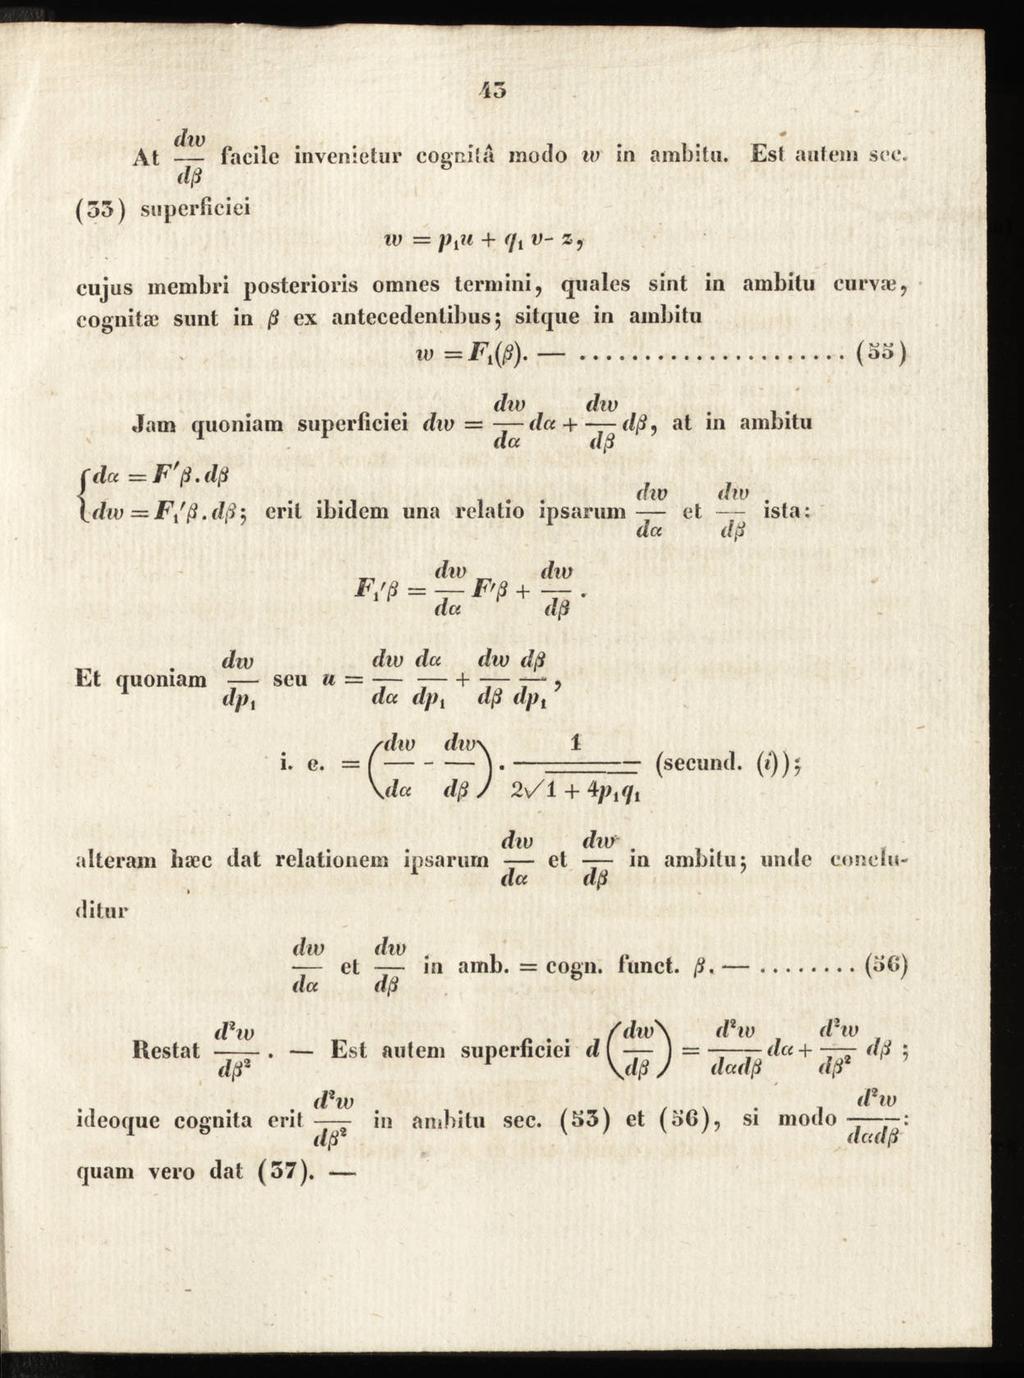 43
At dw/dβ facile invenietur cognitâ modo w in ambitu. Est autem sec.
(33) superficiei
w = p₁u + q₁ v- z,
cujus membri posterioris omnes termini, quales sint in ambitu curvæ,
cognitæ sunt in β ex antecedentibus; sitque in ambitu
w = F₁(β). — ..................... (55)
Jam quoniam superficiei dw = dw/dα dα + dw/dβ dβ, at in ambitu
{dα = F′β.dβ
{dw = F₁′β.dβ; erit ibidem una relatio ipsarum dw/dα et dw/dβ ista:
F₁′β = dw/dα F′β + dw/dβ .
Et quoniam dw/dp₁ seu u = dw/dα dα/dp₁ + dw/dβ dβ/dp₁ ,
i. e. = (dw/dα - dw/dβ) . 1/2√1 + 4p₁q₁ (secund. (i));
alteram hæc dat relationem ipsarum dw/dα et dw/dβ in ambitu; unde conclu-
ditur
dw/dα et dw/dβ in amb. = cogn. funct. β. — ......... (56)
Restat d²w/dβ² . — Est autem superficiei d(dw/dβ) = d²w/dαdβ dα + d²w/dβ² dβ ;
ideoque cognita erit d²w/dβ² in ambitu sec. (53) et (56), si modo d²w/dαdβ:
quam vero dat (37). —